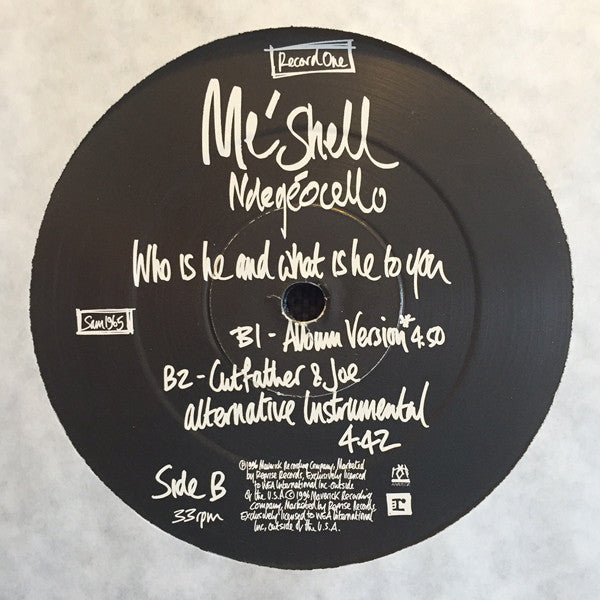 Record One
Me'Shell
Ndegéocello
Who is he and what is he to you
Sam1965
B1 - Album Version* 4.50
B2 - Cutfather & Joe
alternative Instrumental
4.42
Side B
33rpm
℗1996 Maverick Recording Company, Marketed
by Reprise Records, Exclusively licensed
to WEA International Inc. outside
of the U.S.A. © 1996 Maverick Recording
Company, Marketed by Reprise Records,
Exclusively licensed to WEA International
Inc, outside of the U.S.A.